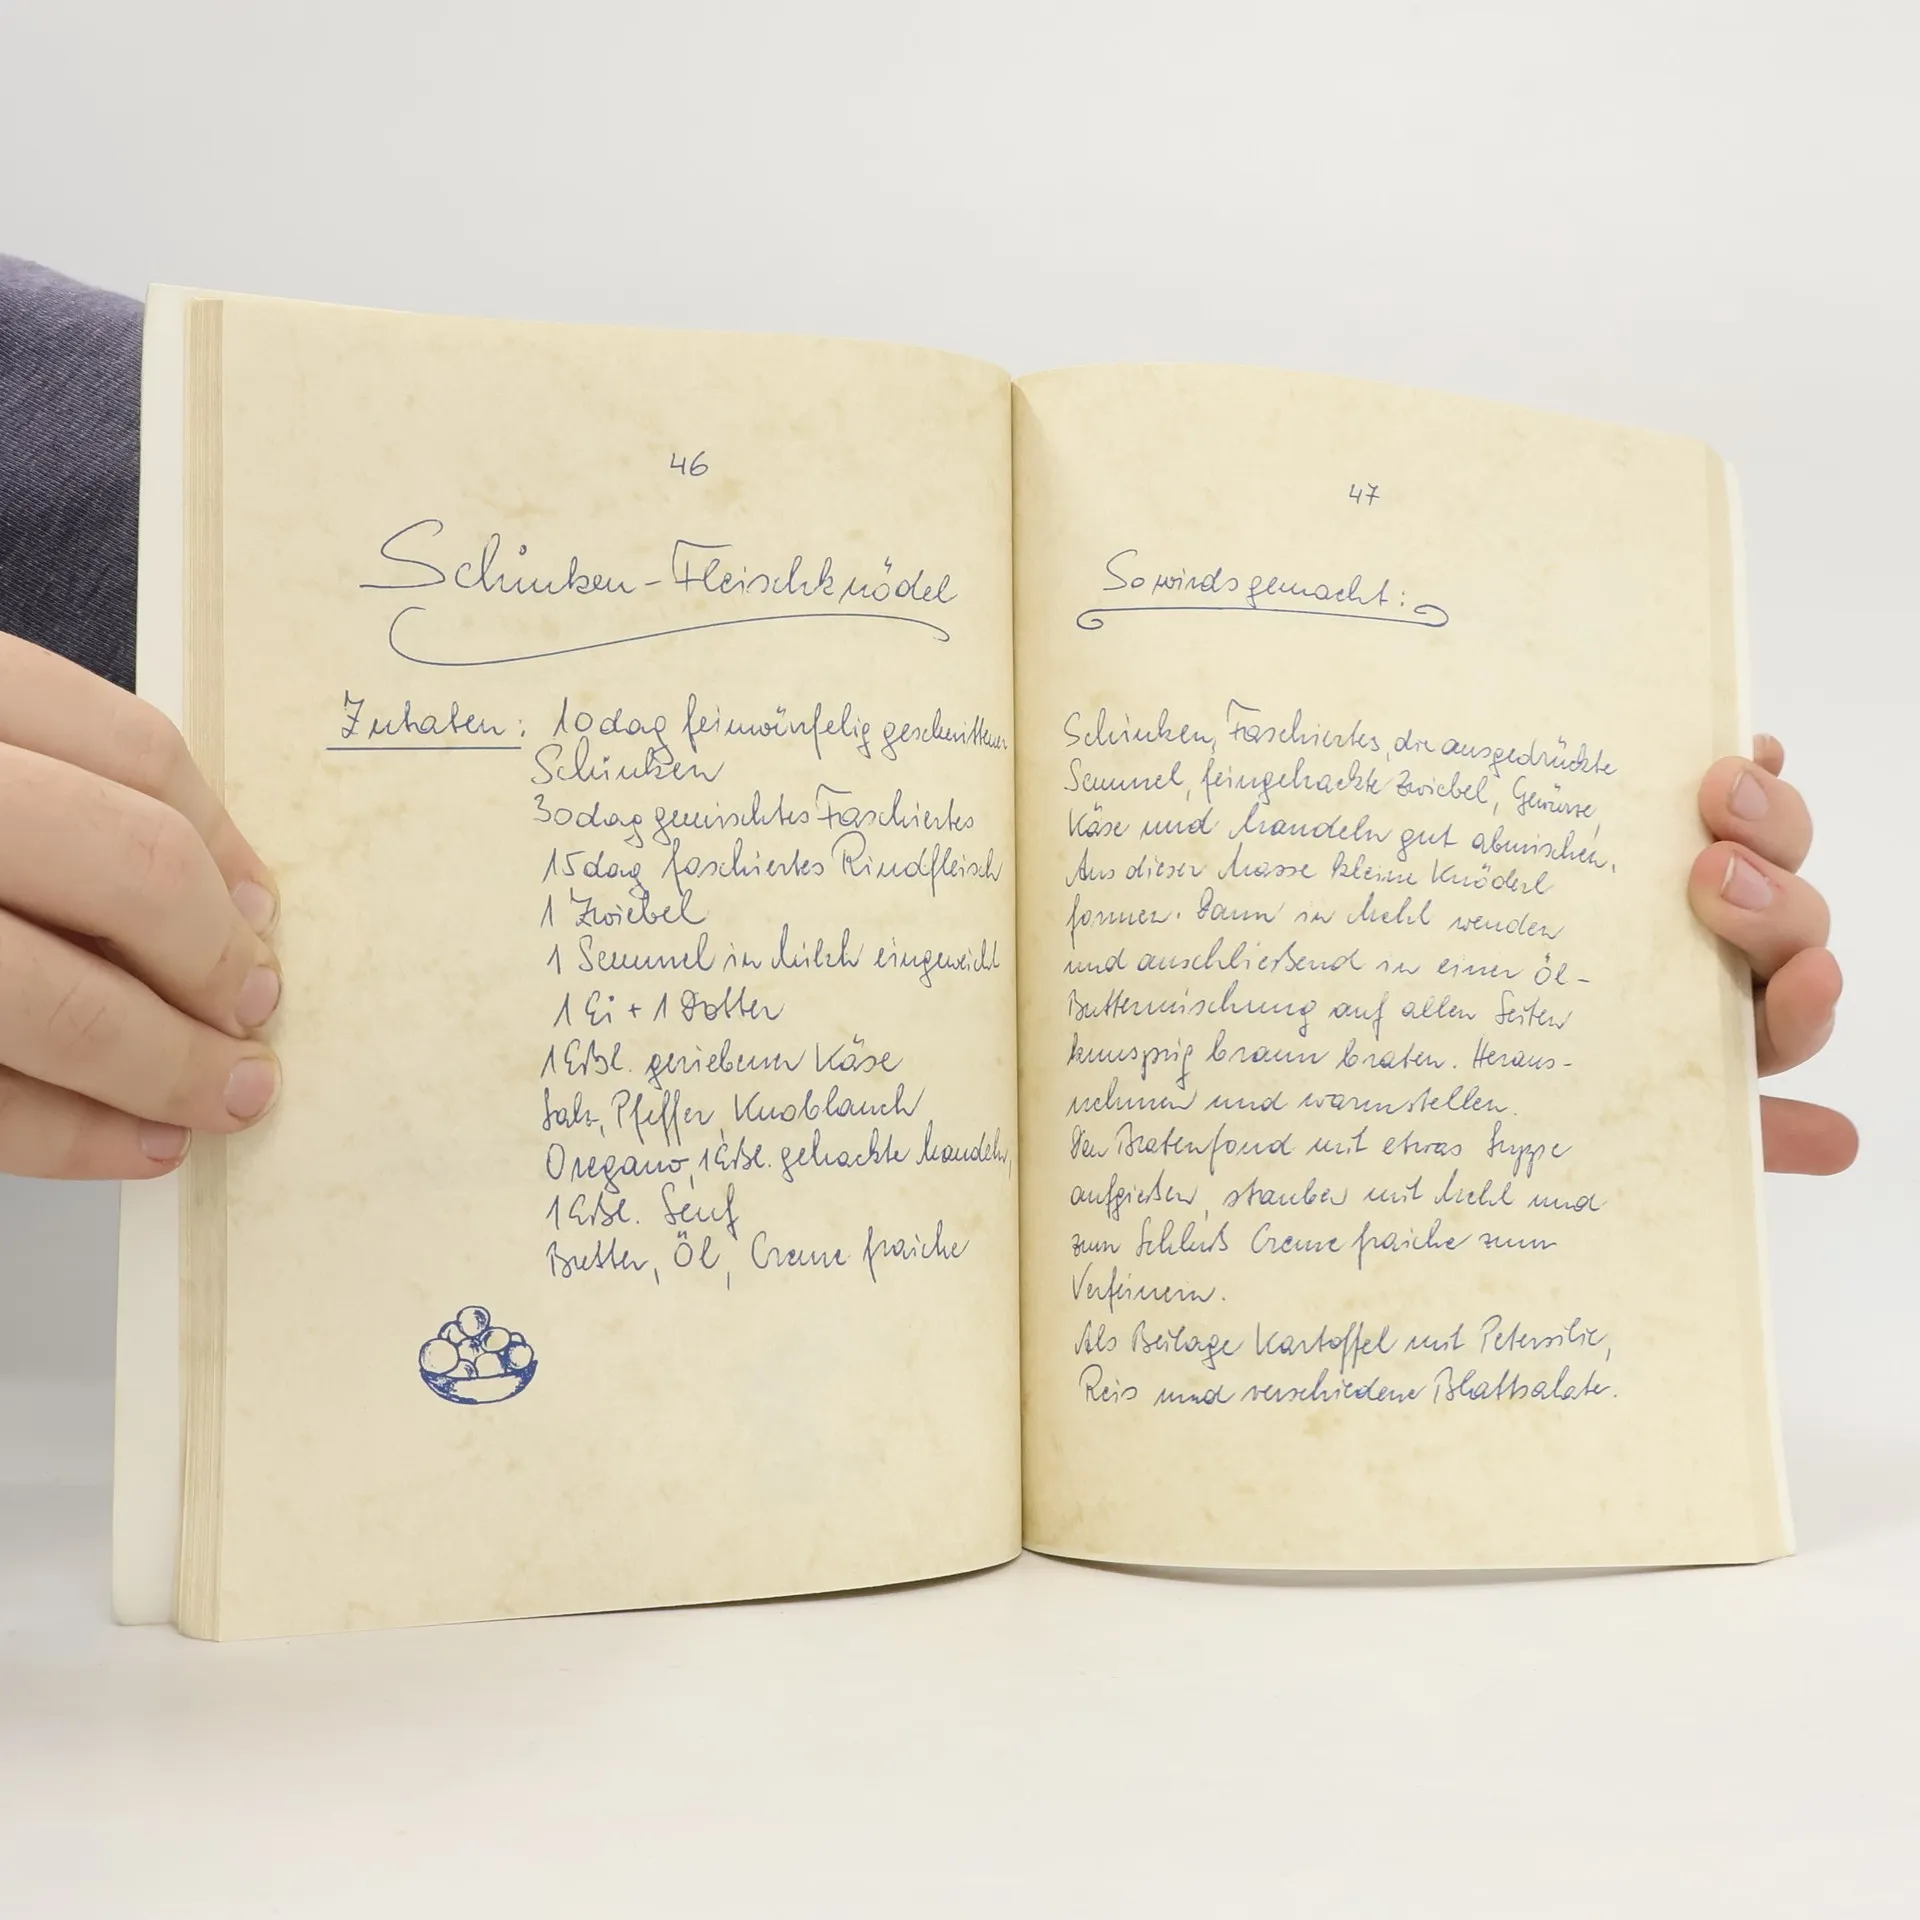 46
Schinken-Fleischknödel
Zutaten: 10 dag feinwürfelig geschnittener
Schinken
30 dag gemischtes Faschiertes
15 dag faschiertes Rindfleisch
1 Zwiebel
1 Semmel in Milch eingeweicht
1 Ei + 1 Dotter
1 Eßl. geriebener Käse
Salz, Pfeffer, Knoblauch
Oregano, 1 Eßl. gehackte Mandeln,
1 Eßl. Senf
Butter, Öl, Creme fraiche
47
So wirds gemacht:
Schinken, Faschiertes, die ausgedrückte
Semmel, feingehackte Zwiebel, Gewürze,
Käse und Mandeln gut abmischen.
Aus dieser Masse kleine Knöderl
formen. Dann in Mehl wenden
und anschließend in einer Öl-
Buttermischung auf allen Seiten
knusprig braun braten. Heraus-
nehmen und warmstellen.
Den Bratenfond mit etwas Suppe
aufgießen, stauben mit Mehl und
zum Schluß Creme fraiche zum
Verfeinern.
Als Beilage Kartoffel mit Petersilie,
Reis und verschiedene Blattsalate.